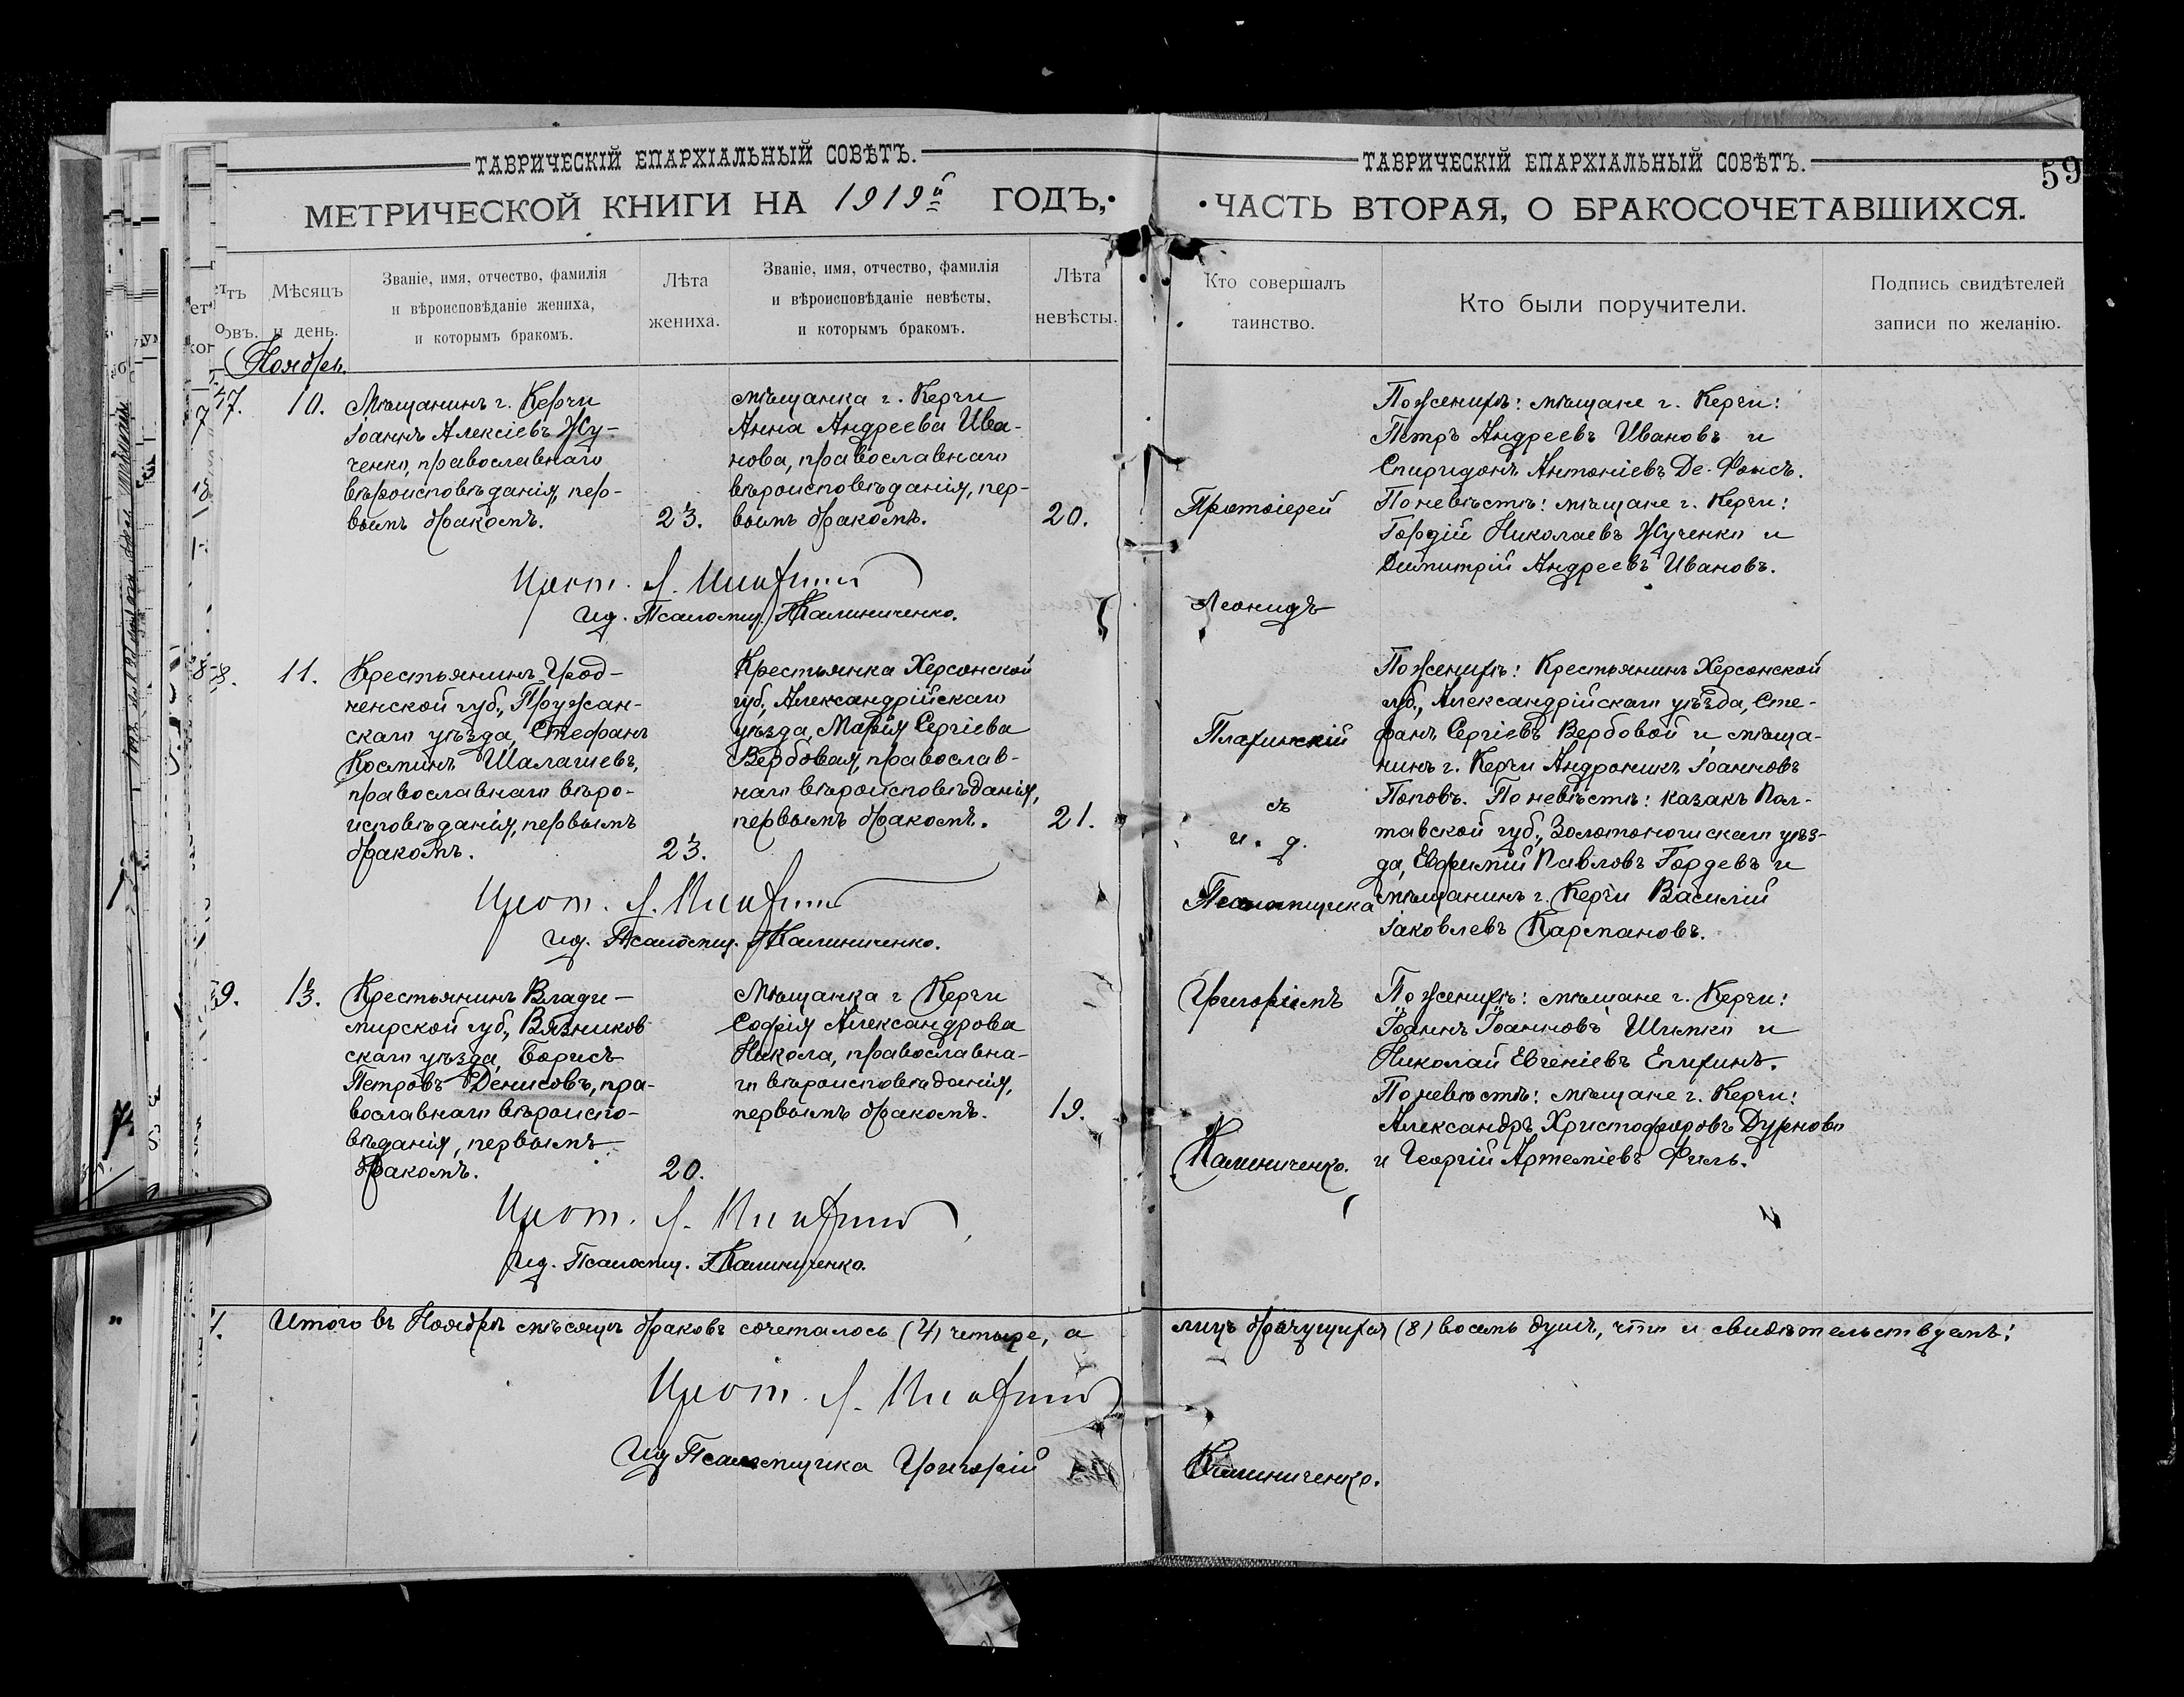 ТАВРИЧЕСКІЙ ЕПАРХІАЛЬНЫЙ СОВѢТЪ.
МЕТРИЧЕСКОЙ КНИГИ НА 1919й ГОДЪ,
Мѣсяцъ и день.
Званіе, имя, отчество, фамилія
и вѣроисповѣданіе жениха,
и которымъ бракомъ.
Лѣта
жениха.
Званіе, имя, отчество, фамилія
и вѣроисповѣданіе невѣсты,
и которымъ бракомъ.
Лѣта
невѣсты.
Ноябрь.
47. 10.
Мѣщанинъ г. Керчи
Іоаннъ Алексіевъ Жу-
ченко, православнаго
вѣроисповѣданія, пер-
вымъ бракомъ.
23.
мѣщанка г. Керчи
Анна Андреева Ива-
нова, православнаго
вѣроисповѣданія, пер-
вымъ бракомъ.
20.
Прот. Л.
Ид. Псаломщ. Калиниченко.
8. 11.
Крестьянинъ Грод-
ненской губ., Пружан-
скаго уѣзда, Стефанъ
Косминъ Шалагиевъ,
православнаго вѣро-
исповѣданія, первымъ
бракомъ.
23.
Крестьянка Херсонской
губ., Александрійскаго
уѣзда, Марія Сергіева
Вербовая, православ-
наго вѣроисповѣданія,
первымъ бракомъ.
21.
Прот. Л.
Ид. Псаломщ. Калиниченко.
9. 13.
Крестьянинъ Влади-
мирской губ., Вязников-
скаго уѣзда, Борисъ
Петровъ Денисовъ, пра-
вославнаго вѣроиспо-
вѣданія, первымъ
бракомъ.
20.
Мѣщанка г Керчи
Софія Александрова
Никола, православна-
го вѣроисповѣданія,
первымъ бракомъ.
19.
Прот. Л.
Ид. Псаломщ. Калиниченко.
Итого въ Ноябрѣ мѣсяцѣ браковъ сочеталось (4) четыре, а
Прот. Л.
Ид Псаломщика Григорій
ТАВРИЧЕСКІЙ ЕПАРХІАЛЬНЫЙ СОВѢТЪ.
59
ЧАСТЬ ВТОРАЯ, О БРАКОСОЧЕТАВШИХСЯ.
Кто совершалъ
таинство.
Кто были поручители.
Подпись свидѣтелей
записи по желанію.
Протоіерей
Леонидъ
съ
и. д.
Псаломщика
Григоріемъ
Калиниченко.
По женихѣ: мѣщане г. Керчи:
Петръ Андреевъ Ивановъ и
Спиридонъ Антоніевъ Де-Фонсъ.
По невѣстѣ: мѣщане г. Керчи:
Гордій Николаевъ Жученко и
Димитрій Андреевъ Ивановъ.
По женихѣ: Крестьянинъ Херсонской
губ., Александрійскаго уѣзда, Сте-
фанъ Сергіевъ Вербовой и мѣща-
нинъ г. Керчи Андроникъ Іоанновъ
Поповъ. По невѣстѣ: казакъ Пол-
тавской губ., Золотоношскаго уѣз-
да, Евфимій Павловъ Гордевъ и
мѣщанинъ г. Керчи Василій
Іаковлевъ Кармановъ.
По женихѣ: мѣщане г. Керчи:
Іоаннъ Іоанновъ и
Николай Евгеніевъ Епихинъ.
По невѣстѣ: мѣщане г. Керчи:
Александръ Христофоровъ Дурново
и Георгій Артеміевъ Филь.
лицъ брачущихся (8) восемь душъ, что и свидѣтельствуемъ:
Калиниченко.